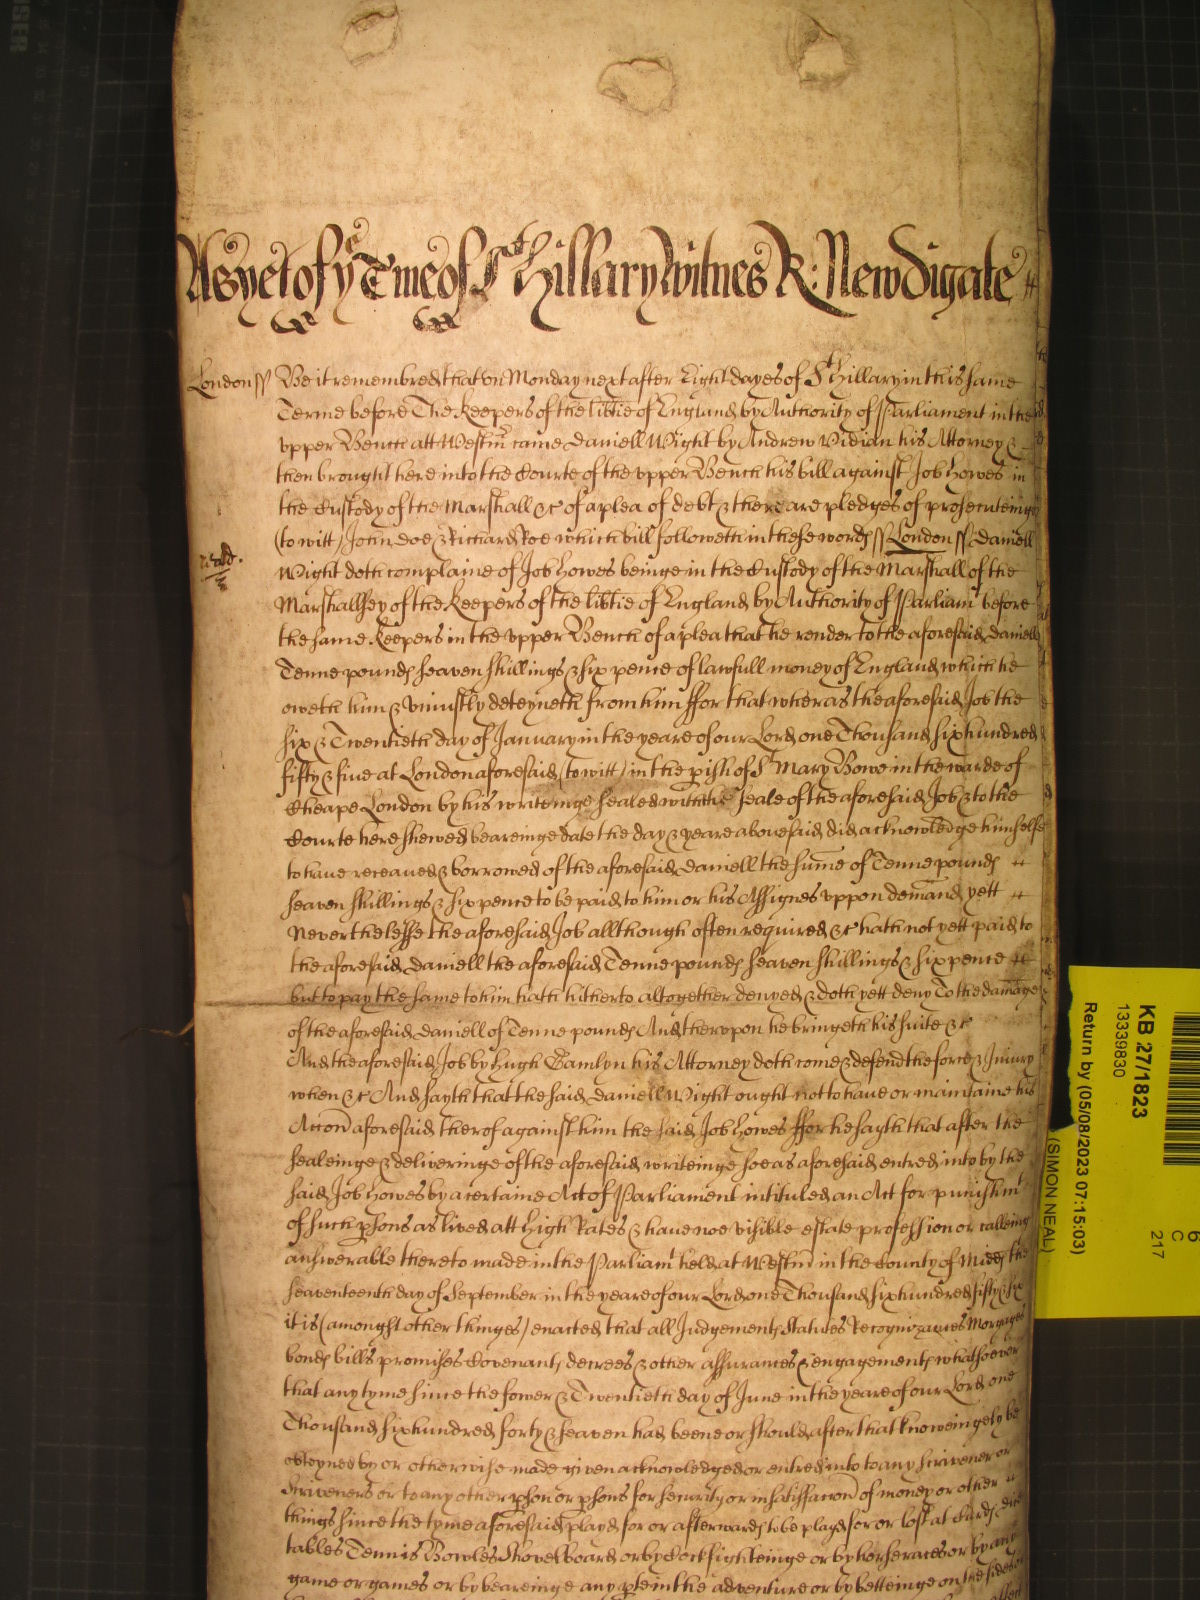 As yet of ye Tme of St Hillary Witnes R: Newdigate
London ss Be it remembred that on Monday next after Eight dayes of St Hillary in this same
Terme before The Keepers of the libtie of England by Authority of Parliament in the
vpper Bench att Westmr came Daniell Wight by Andrew Vidian his Attorney &
then brought here into the Courte of the vpper Bench his bill against Job Howes in
the Custody of the Marshall &c of a plea of debt & there are pledges of prosecuteinge
(to witt) John Doe & Richard Roe which bill followeth in these words ss London ss Daniell
Wight doth complaine of Job Howes beinge in the Custody of the Marshall of the
Marshallsey of the Keepers of the libtie of England by Authority of Parliamt before
the same Keepers in the vpper Bench of a plea that he render to the aforesaid Daniell
Tenne pounds seaven shillings & six pence of lawfull money of England which he
oweth him & vniustly deteyneth from him ffor that wheras the aforesaid Job the
six & Twentieth day of January in the yeare of our Lord one Thousand six hundred
fifty & fiue at London aforesaid (to witt) in the pish of St Mary Bowe in the warde of
Cheape London by his writeinge sealed with the seale of the aforesaid Job & to the
Courte here shewed beareinge date the day & yeare abovesaid did acknowledge himselfe
to haue receaued & borrowed of the aforesaid Daniell the sume of Tenne pounds
seaven shillings & six pence to be paid to him or his Assignes vppon demand yett
Neverthelesse the aforesaid Job allthough often required &c hath not yett paid to
the aforesaid Daniell the aforesaid Tenne pounds seaven shillings & six pence
but to pay the same to him hath hitherto altogether denyed & doth yett deny To the damage
of the aforesaid Daniell of Tenne pounds And thervpon he bringeth his suite &c
And the aforesaid Job by Hugh Hamlyn his Attorney doth come & defend the force & Iniury
when &c And sayth that the said Daniell Wight ought not to haue or maintaine his
Accon aforesaid therof against him the said Job Howes ffor he sayth that after the
sealeinge & deliveringe of the aforesaid writeinge soe as aforesaid entred into by the
said Job Howes by a certaine Act of Parliament intituled an Act for punishmt
of such psons as lived att high Rates & haue noe visible estate profession or calleing
answerable thereto made in the Parliamt held at Westm in the County of Midds the
seaventeenth day of September in the yeare of our Lord one Thousand six hundred fifty & six
it is (amongst other thinges) enacted that all Judgements Statutes Recognizances Morgages
bonds bills promises Covenants decrees & other assurances & engagements whatsoever
that any tyme since the fower & Twentieth day of June in the yeare of our Lord one
Thousand six hundred forty & seaven had beene or should after that knoweingely be
obteyned by or otherwise made given acknowledged or entred into to any scrivener or
Scriveners or to any other pson or psons for security or in satisfaccon of money or other
things since the tyme aforesaid playd for or afterwards to be playd for or lost at Cards dice
tables Tennis Bowles Shovelboard or by Cockfighteinge or by horse races or by any
game or games or by beareinge any pte in the adventure or by betteinge on the sides
KB 27/1823
13339830
Return by (05/08/2023 07:15:03)
(SIMON NEAL)
6
C
217